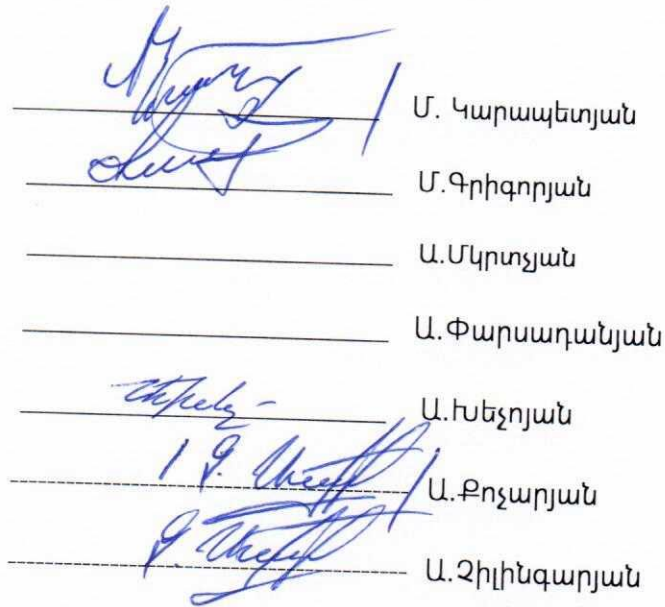 Մ. Կարապետյան
Մ.Գրիգորյան
Ա.Մկրտչյան
Ա.Փարսադանյան
Ա.Խեչոյան
Ա.Քոչարյան
Ա.Չիլինգարյան